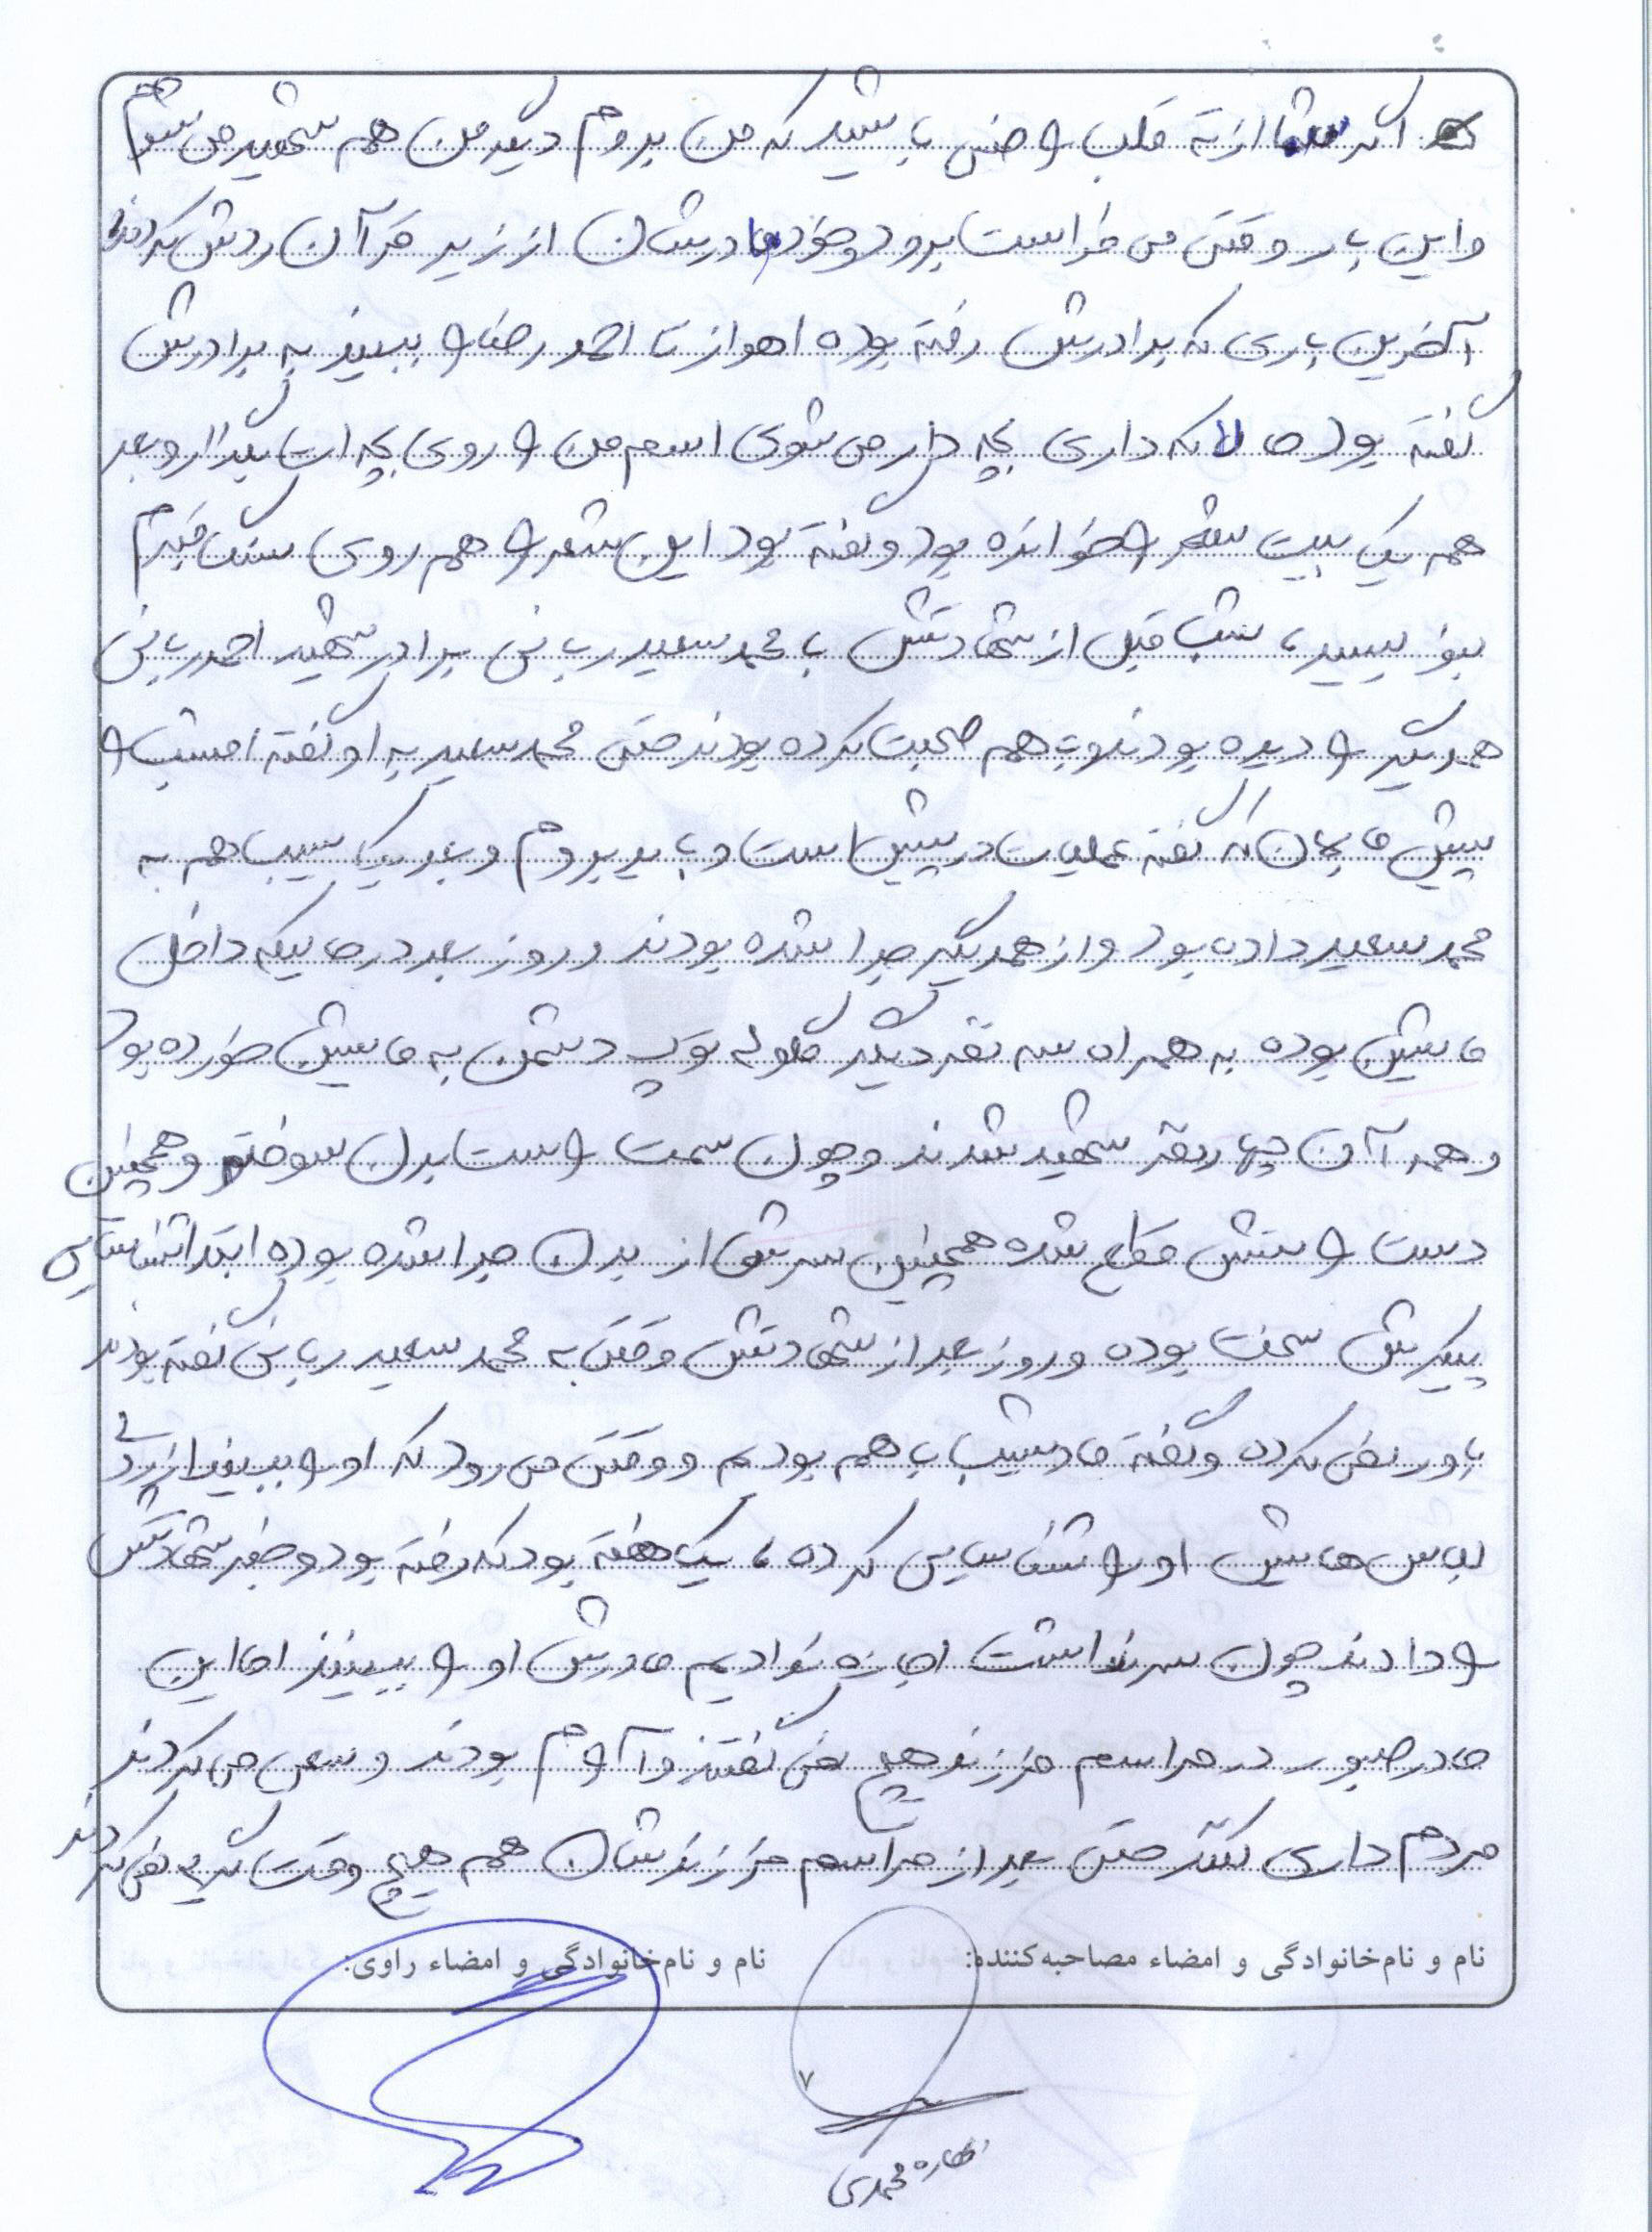 اگر شما از ته قلب راضی باشید که من بروم دیگر من هم شهید می شوم
و این بار وقتی می خواست برود خود مادرشان از زیر قرآن ردش کردند
آخرین باری که برادرش رفته بوده اهواز تا احمد رضا را ببیند به برادرش
گفته بود حالا که داری بچه دار می شوی اسم من را روی بچه ات بگذار و بعد
هم یک بیت شعر را خوانده بود و گفته بود این شعر را هم روی سنگ قبرم
بنویسید، شب قبل از شهادتش با محمد سعید ربانی برادر شهید احمد ربانی
همدیگر را دیده بودند و با هم صحبت کرده بودند حتی محمد سعید به او گفته امشب را
پیش ما بمان که گفته عملیات در پیش است و باید بروم و بعد یک سیب هم به
محمد سعید داده بود و از همدیگر جدا شده بودند و روز بعد در حالیکه داخل
ماشین بوده به همراه سه نفر دیگر گلوله توپ دشمن به ماشین خورده بود
و همه آن چهار نفر شهید شدند و چون سمت راست بدن سوخته و همچنین
دست راستش قطع شده همچنین سرش از بدن جدا شده بوده ابتدا شناسایی
پیکرش سخت بوده و روز بعد از شهادتش وقتی به محمد سعید ربانی گفته بودند
باور نمی کرده و گفته ما دیشب با هم بودیم و وقتی می رود که او را ببیند از روی
لباس هایش او را شناسایی کرده، یک هفته بود که رفته بود و خبر شهادتش
را دادند چون سر نداشت اجازه ندادیم مادرش او را ببینند اما این
مادر صبور در مراسم فرزند هیچ نمی گفتند و آرام بودند و سعی می کردند
مردم داری کنند حتی بعد از مراسم فرزندشان هم هیچ وقت گریه نمی کردند
نام و نام‌خانوادگی و امضاء مصاحبه‌کننده: نام و نام‌خانوادگی و امضاء راوی:
۷
محمدی